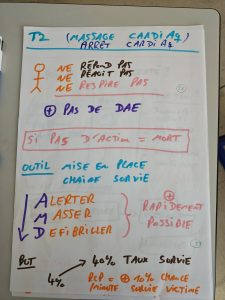 T2 (MASSAGE CARDIAQ)
ARRÊT CARDIAQ
NE RÉPOND PAS
NE RÉAGIT PAS
NE RESPIRE PAS
⊕ PAS DE DAE
SI PAS D'ACTION = MORT
OUTIL MISE EN PLACE
CHAÎNE SURVIE
ALERTER
MASSER
DEFIBRILLER
⊕
RAPIDEMENT
POSSIBLE
BUT
4% → 40% TAUX SURVIE
RCP = ⊕ 10% CHANCE
MINUTE SURVIE VICTIME